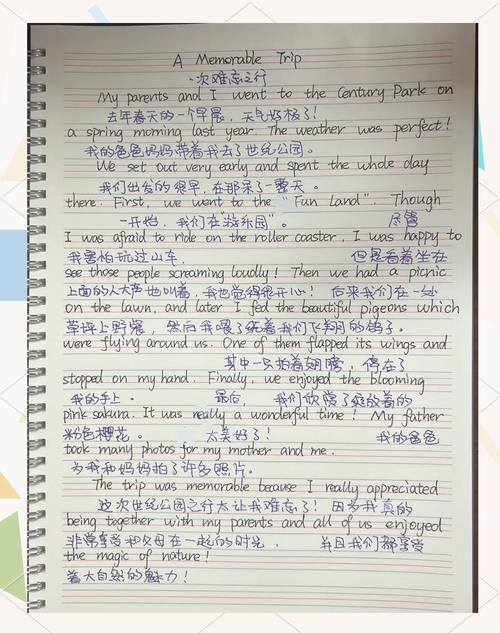 A Memorable Trip
一次难忘之行
My parents and I went to the Century Park on
去年春天的一个早晨，天气好极了！
a spring morning last year. The weather was perfect!
我的爸爸妈妈带着我去了世纪公园。
We set out very early and spent the whole day
我们出发的很早，在那呆了一整天。
there. First, we went to the "Fun Land". Though
一开始，我们在"游乐园"。 尽管
I was afraid to ride on the roller coaster, I was happy to
我害怕玩过山车， 但是看着坐在
see those people screaming loudly! Then we had a picnic
上面的人大声地叫着，我也觉得很开心！ 后来我们在一处
on the lawn, and later I fed the beautiful pigeons which
草坪上野餐，然后我喂了绕着我们飞翔的鸽子。
were flying around us. One of them flapped its wings and
其中一只拍着翅膀，停在了
stopped on my hand. Finally, we enjoyed the blooming
我的手上。 最后， 我们欣赏了绽放着的
pink sakura. It was really a wonderful time! My father
粉色樱花。 太美好了！ 我的爸爸
took many photos for my mother and me.
为我和妈妈拍了许多照片。
The trip was memorable because I really appreciated
这次世纪公园之行太让我难忘了！因为我真的
being together with my parents and all of us enjoyed
非常享受和父母在一起的时光， 并且我们都享受
the magic of nature!
着大自然的魅力！